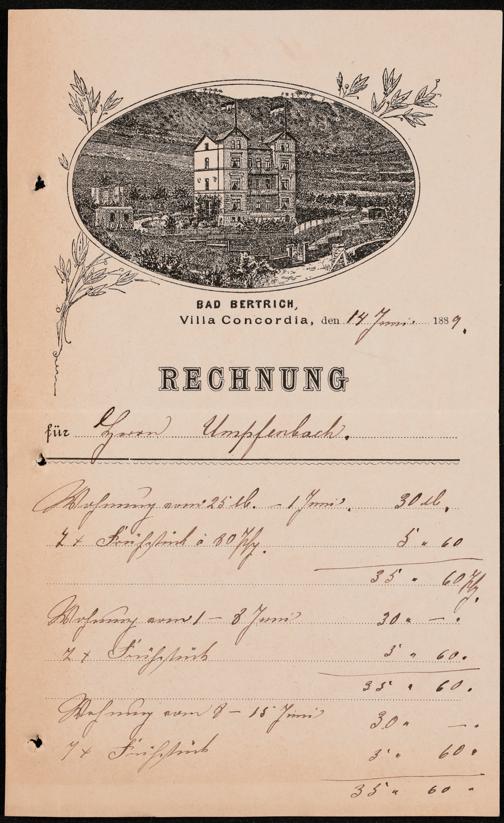 BAD BERTRICH,
Villa Concordia, den 14 Juni 1889.
RECHNUNG
für Herrn Umpfenbach.
Wohnung vom 25 lb. - 1 Juni. 30 M.
7 x Frühstück à 80 Pfg. 5 " 60
35 " 60 Pfg.
Wohnung vom 1 - 8 Juni 30 " - "
7 x Frühstück 5 " 60.
35 " 60.
Wohnung vom 8 - 15 Juni 30 " - "
7 x Frühstück 5 " 60 "
35 " 60 "